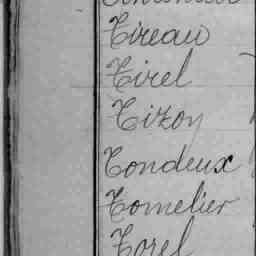 Tireau
Tirel
Tizon
Tondeux
Tomelier
Torel